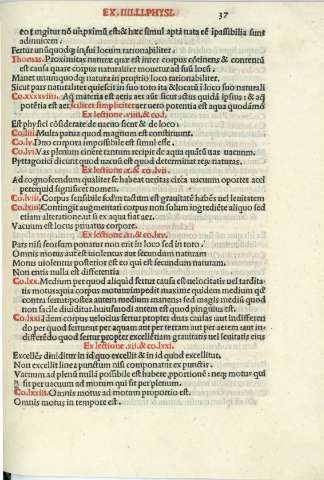 EX .IIII.LI.PHYSI.
37
eo
tangitur nō
hæc simul apta nata eē ipassibilia sunt
adinuicem.
Fertur unūquodq; in sui locum rationabiliter.
Thomas. Proximitas naturæ quæ est inter corpus cōtinens & contentū
est causa quare corpus naturaliter mouetur ad suū locū.
Manet unumquodq; natura in proprio loco rationabiliter.
Sicut pars naturaliter quiescit in suo toto ita & locatū i loco suo naturali
Aqua materia est aeris aer aūt sicut actus quidā ipsius: & aq
potētia est aer scilicet simpliciter aer uero potentia est aqua quodāmō
Ex lectione
Est physici cōsiderare de uacuo sicut & de loco.
Multa patua quod magnum est constituunt.
Duo corpora impossibile est simul esse.
Co.lv. Vas plenum cinere tantum recipit de aqua quātū uas uacuum.
Pyttagorici dicunt quod uacuū est quod determinat res naturas.
Ex lectione .x. & co.lvii.
Ad cognoscendum qualiter se habeat ueritas circa uacuum oportet accipere
quid significet nomen.
Co.lviii. Corpus sensibile scdm tactum est grauitatē habēs uel leuitatem
Contingit augmentari corpus non solum ingrediēte aliquo sed
etiam alteratione .ut si ex aqua fiat aer.
Vacuum est locus priuatus corpore.
Ex lectione .xi. & co.lxv.
Pars nisi seorsum ponatur non erit in loco sed in toto.
Omnis motus aut est uiolentus aut secundum naturam
Motus uiolentus posterior est eo qui est secundum naturam.
Non entis nulla est differentia
Co.lxx. Medium per quod aliquid fertur causa est uelocitatis uel tarditatis
motus quia corpus motum impedit maxime quidem medium qd
contra fertur postea autem medium manens: sed magis mediū quod
non facile diuiditur huiusmodi autem est quod pinguius est
Co.lxxi. Idem corpus uelocius fertur propter duas causas aut indifferendo
per quod fertur ut per aquam aut per terram aut per aerem aut indifferēdo
quod fertur propter excellētiam grauitatis uel leuitatis eius
Ex lectione .xii. & co.lxxi.
Excellēs diuiditur in id quo excellit & in id quod excellitur.
Non excellit linea punctum nisi componatur ex punctis.
Vacuum ad plenū nullā possibile est habere pportionē: neq; motus qui
fit per uacuum ad motum qui fit per plenum.
Omnis motus ad motum proportio est.
Omnis motus in tempore est.